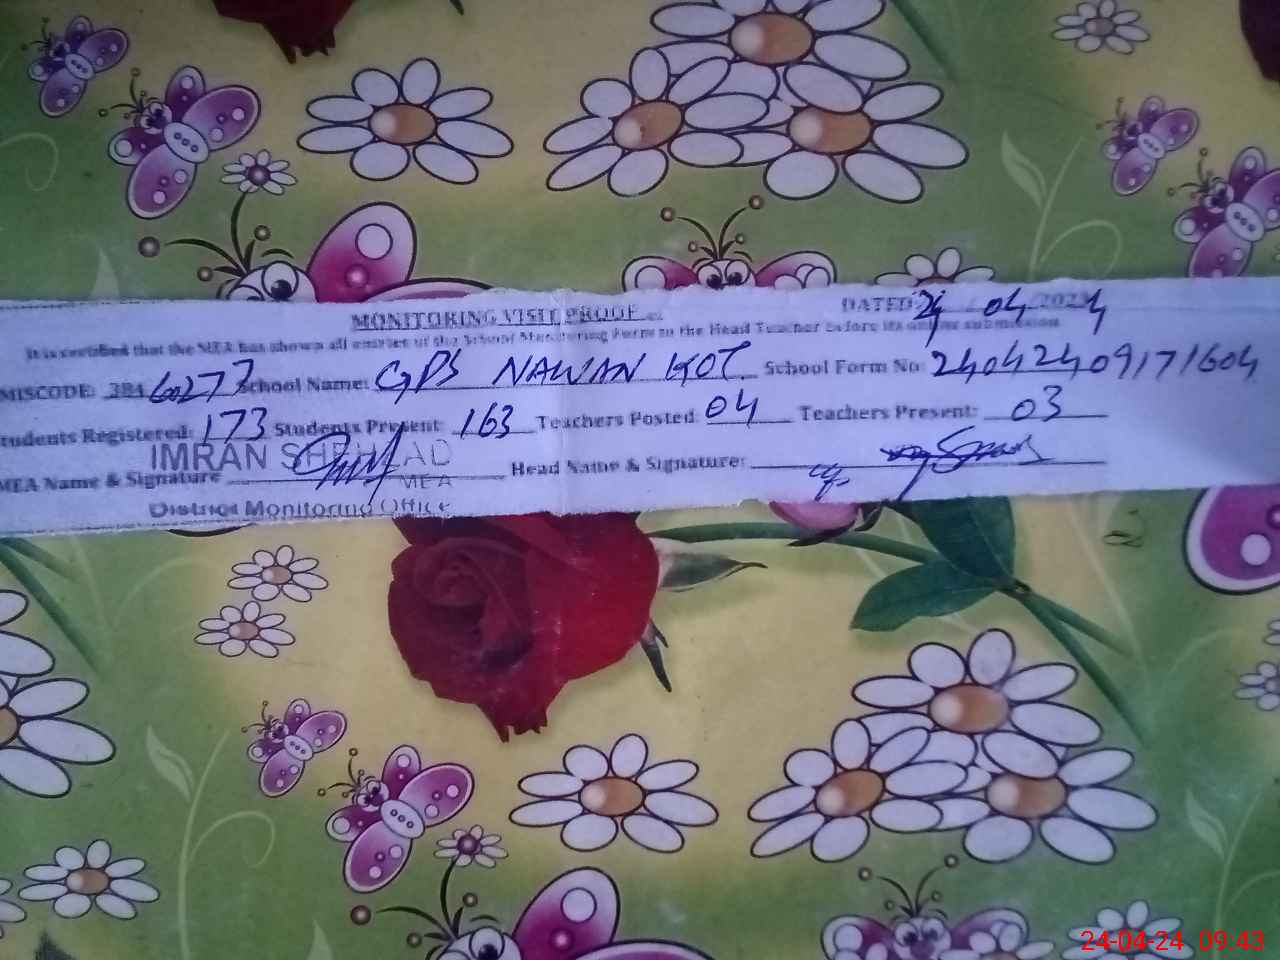 MONITORING VISIT PROOF
DATED: 24 / 04 / 2024
It is certified that the MEA has shown all entries of the School Monitoring Form to the Head Teacher before its online submission
MISCODE: 384 60277 School Name: GPS NAWAN KOT School Form No: 24042409171604
tudents Registered: 173 Students Present: 163 Teachers Posted: 04 Teachers Present: 03
IMRAN SHEHZAD
MEA Name & Signature Head Name & Signature:
MEA
District Monitoring Office
24-04-24 09:43